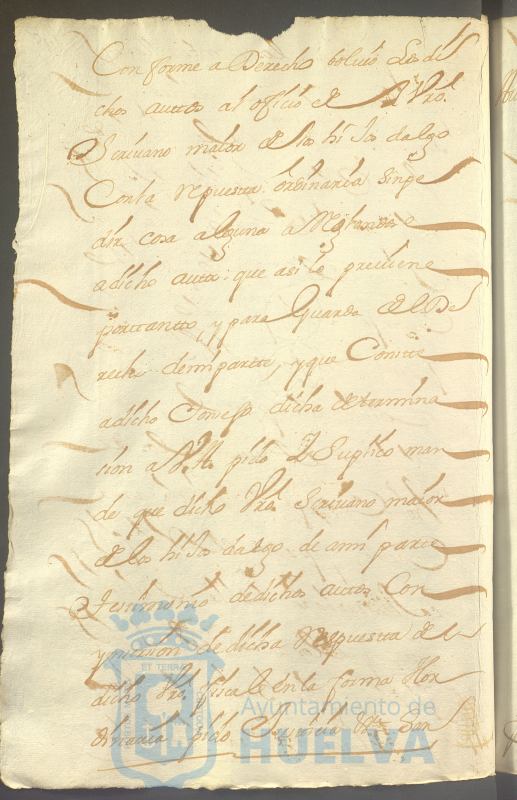 Conforme a Derecho bolvio los di
chos auttos al oficio de Vro.
Scrivano maior de los hijos dalgo
Con la repuesta ordinaria sin pe
dir cosa alguna
a dicho autto que asi le previene
por tantto, y para guarda del De
recho de mi parte, y que Conste
a dicho Consejo dicha determina
cion a V.A. pido Y Suplico man
de que dicho Vro. Scrivano maior
de los hijos dalgo de a mi parte
testimonio de dichos auttos Con
ynsercion de dicha repuesta de
dicho Vro. fiscal en la forma Hor
dinaria pido Justicia
ET TERRAE
Ayuntamiento de
HUELVA